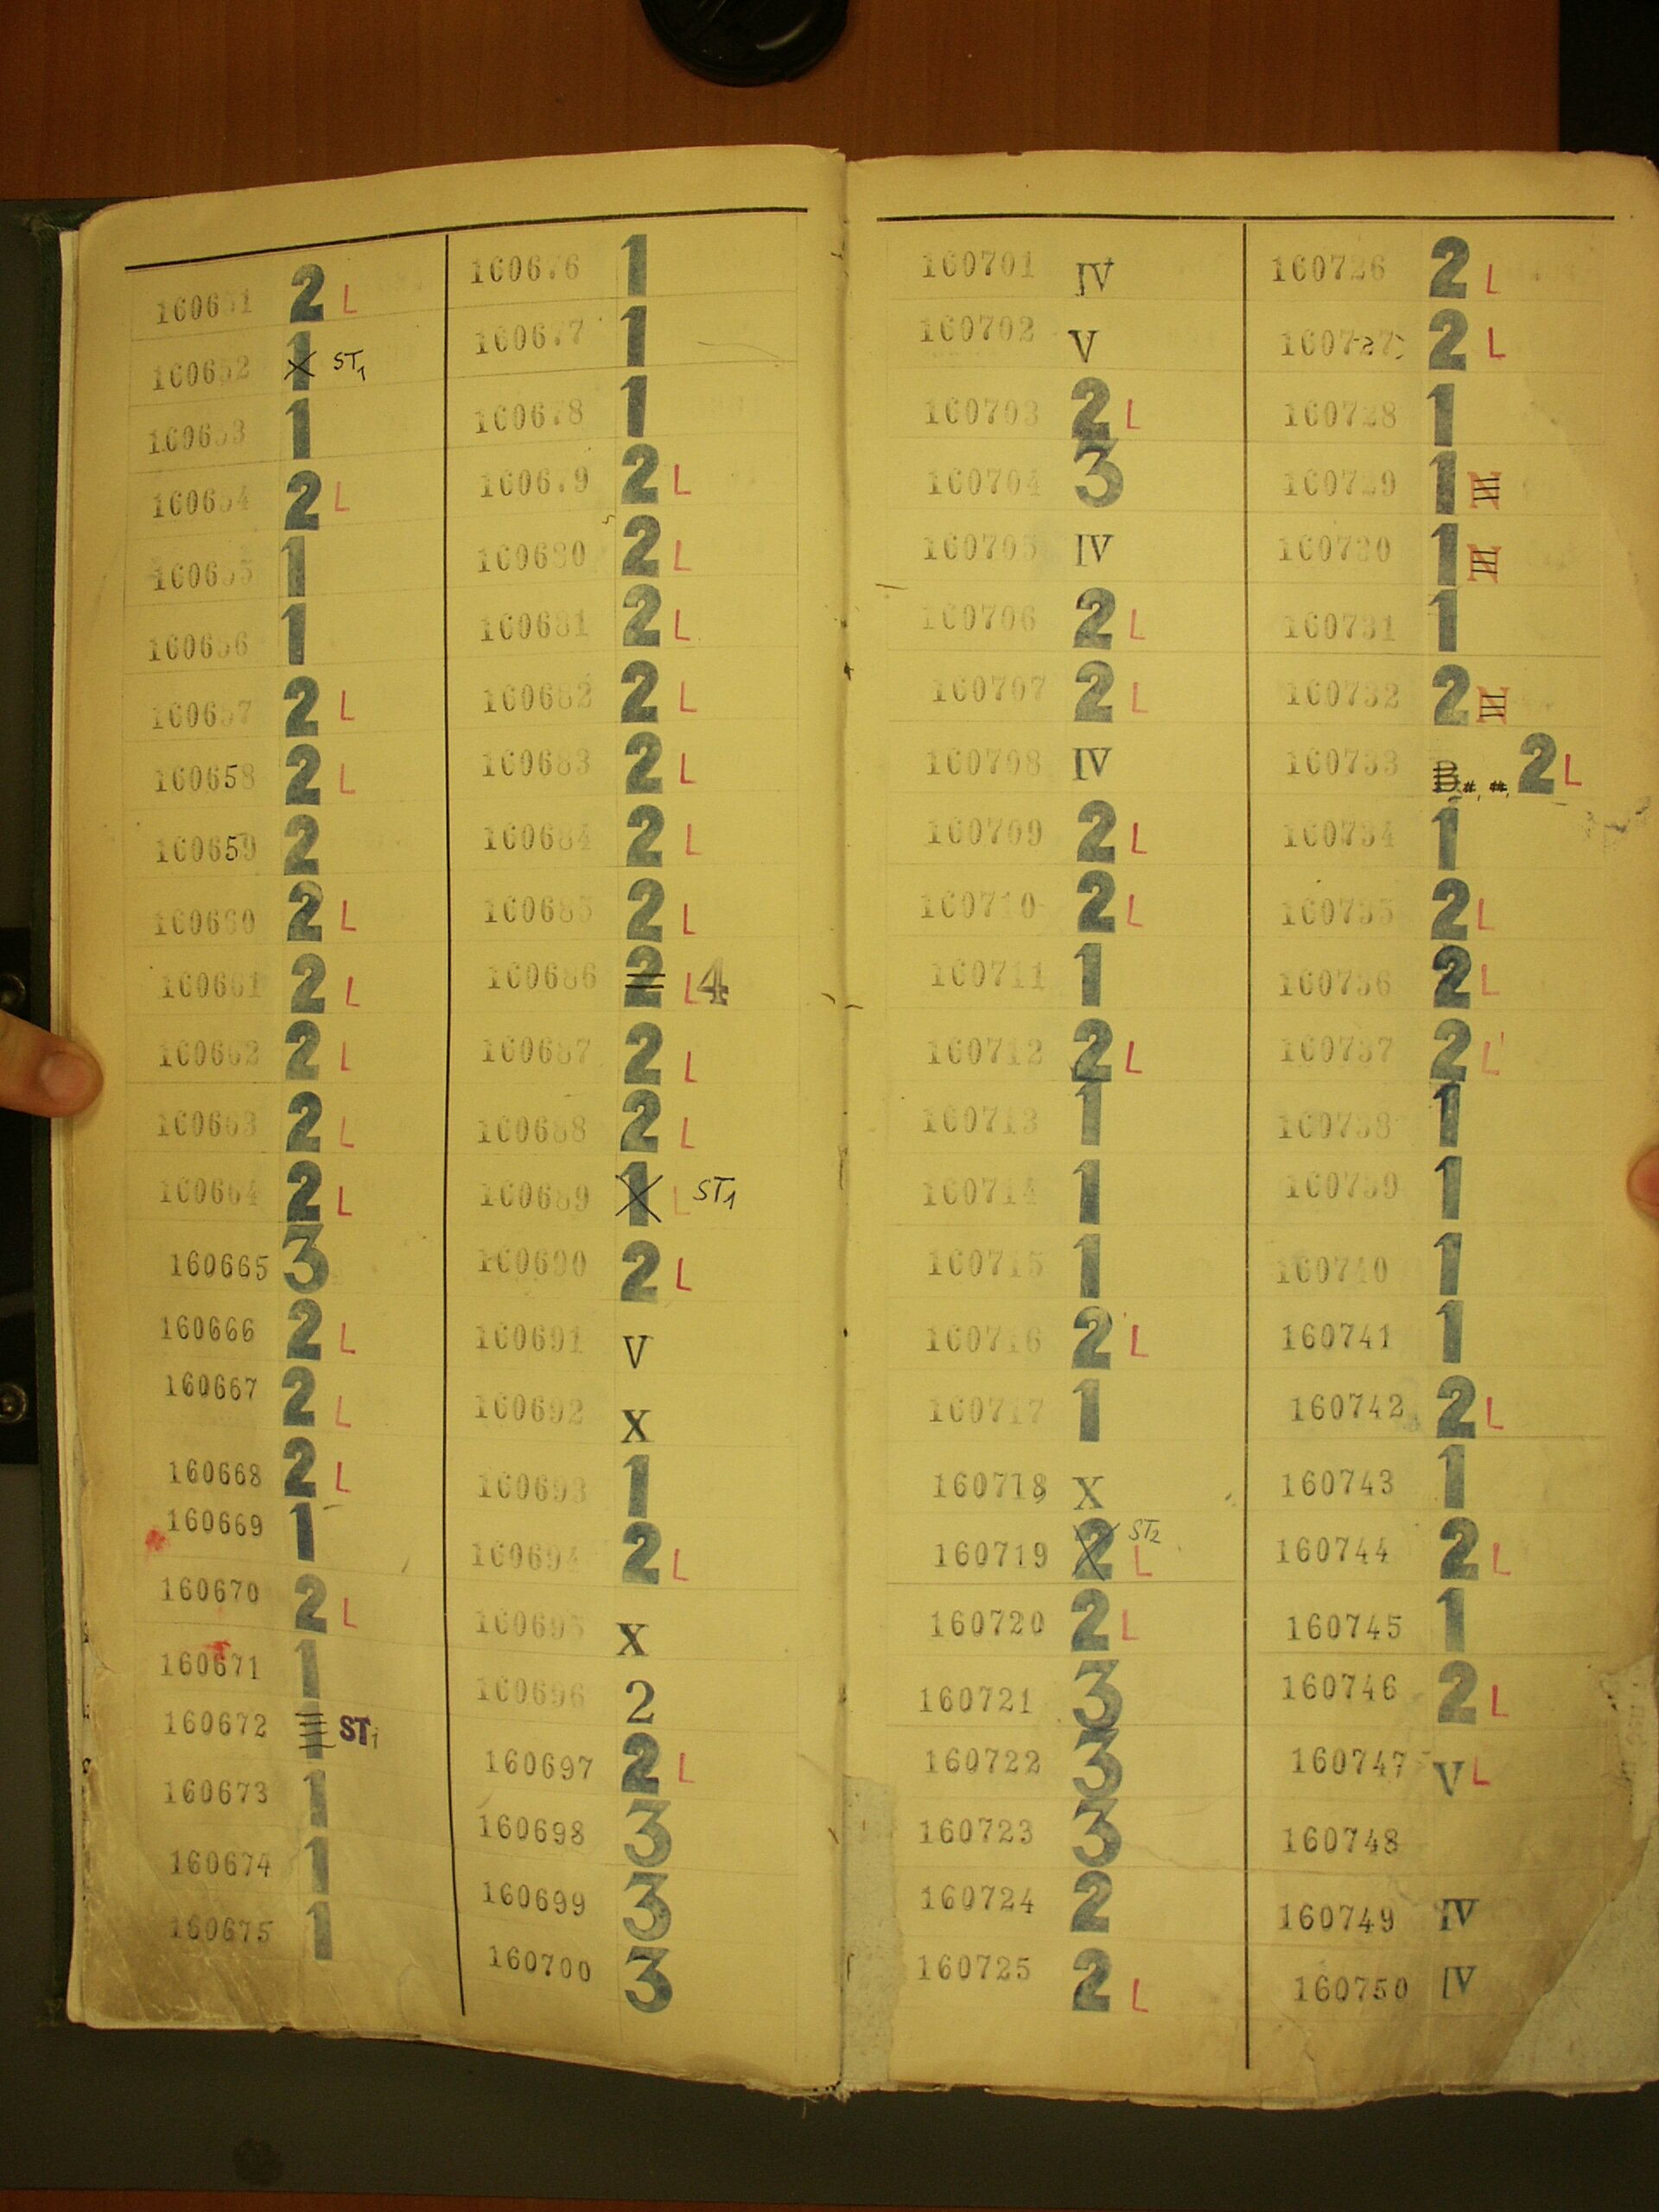 160651 2 L
160652 1 ST1
160653 1
160654 2 L
160655 1
160656 1
160657 2 L
160658 2 L
160659 2
160660 2 L
160661 2 L
160662 2 L
160663 2 L
160664 2 L
160665 3
160666 2 L
160667 2 L
160668 2 L
160669 1
160670 2 L
160671 1
160672 1 ST1
160673 1
160674 1
160675 1
160676 1
160677 1
160678 1
160679 2 L
160680 2 L
160681 2 L
160682 2 L
160683 2 L
160684 2 L
160685 2 L
160686 2 L 4
160687 2 L
160688 2 L
160689 1 L ST1
160690 2 L
160691 V
160692 X
160693 1
160694 2 L
160695 X
160696 2
160697 2 L
160698 3
160699 3
160700 3
160701 IV
160702 V
160703 2 L
160704 3
160705 IV
160706 2 L
160707 2 L
160708 IV
160709 2 L
160710 2 L
160711 1
160712 2 L
160713 1
160714 1
160715 1
160716 2 L
160717 1
160718 X
160719 2 L ST2
160720 2 L
160721 3
160722 3
160723 3
160724 2
160725 2 L
160726 2 L
160727 2 L
160728 1
160729 1 N
160730 1 N
160731 1
160732 2 N
160733 B 2 L
160734 1
160735 2 L
160736 2 L
160737 2 L
160738 1
160739 1
160740 1
160741 1
160742 2 L
160743 1
160744 2 L
160745 1
160746 2 L
160747 V L
160748
160749 IV
160750 IV